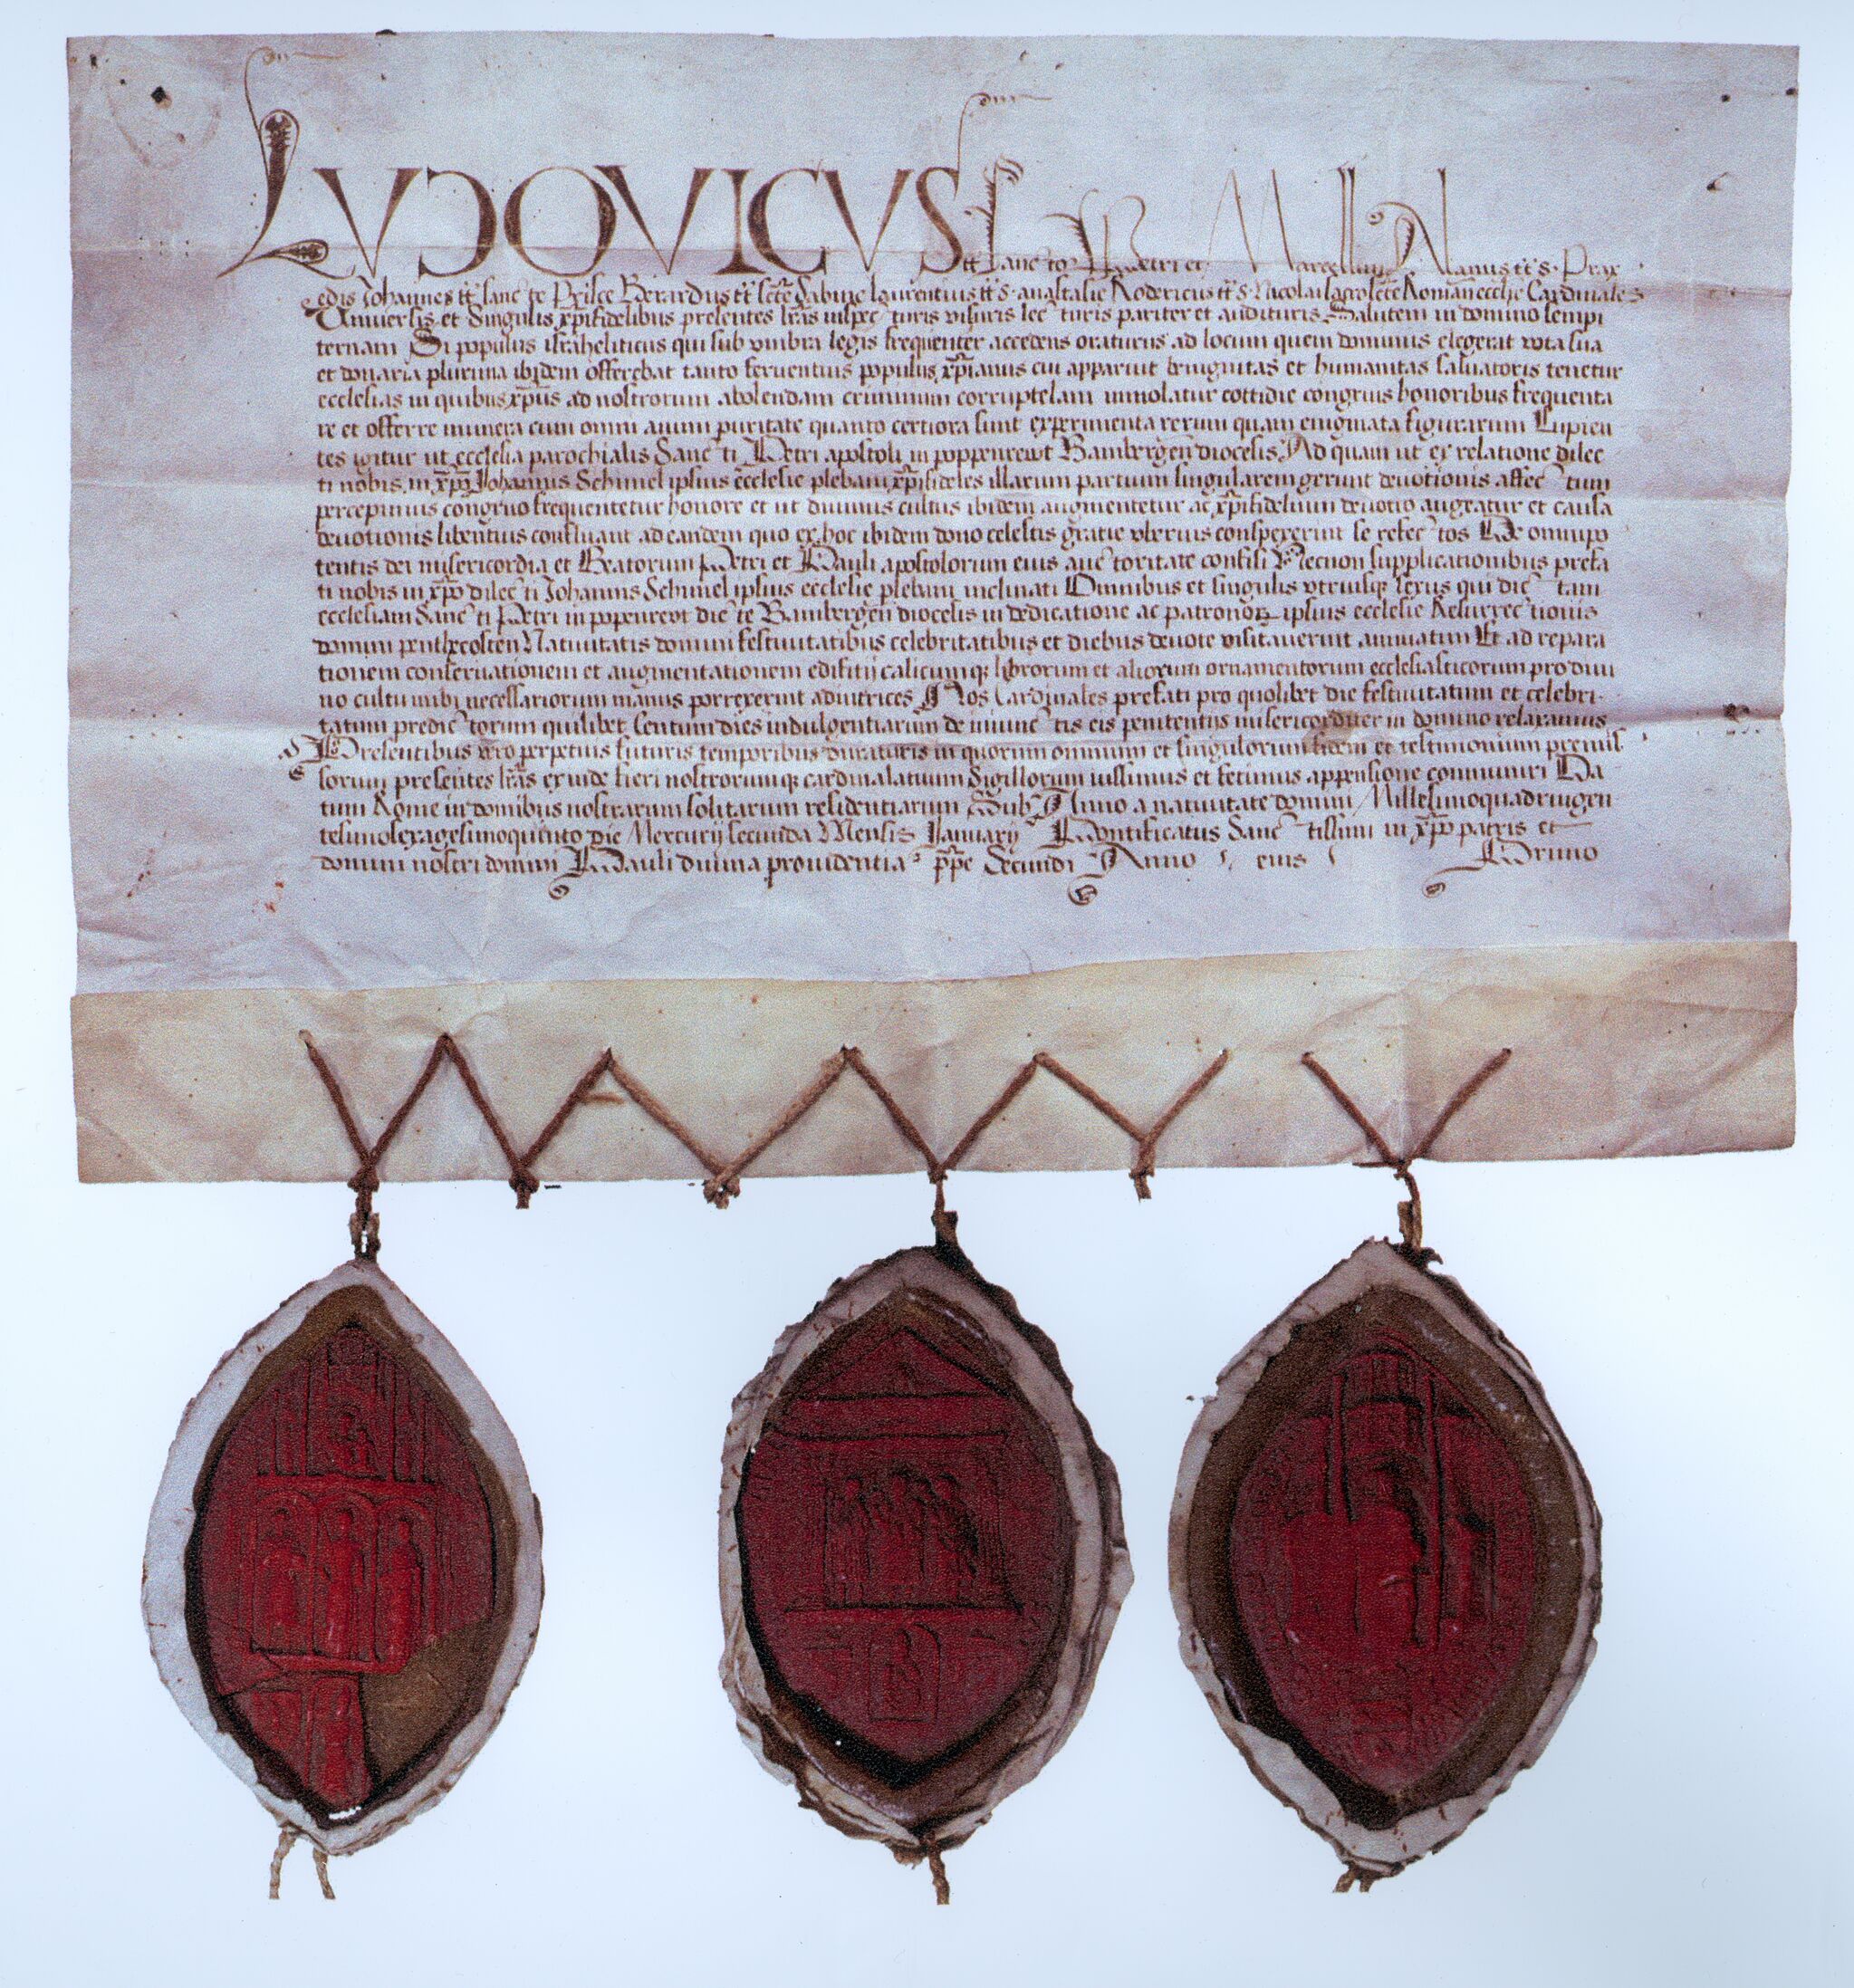 LUDOVICUS tt Sanctor Petri et Marcellini Alanus tt s. Prax
edis Johannes tt sancte Prisce Berardus tt scte Sabine Laurentius tt s. anastasie Rodericus tt s. Nicolai sacroscte Roman ecclie Cardinales
Universis et Singulis xpifidelibus presentes lras inspecturis visuris lecturis pariter et audituris Salutem in domino sempi
ternam Si populus israheliticus qui sub umbra legis frequenter accedens oraturus ad locum quem dominus elegerat vota sua
et donaria plurima ibidem offerebat tanto ferventius populus xpianus cui apparuit benignitas et humanitas salvatoris tenetur
ecclesias in quibus xpus ad nostrorum abolendam criminum corruptelam immolatur cottidie congruis honoribus frequenta
re et offerre munera cum omni animi puritate quanto certiora sunt experimenta rerum quam enigmata figurarum Cupien
tes igitur ut ecclesia parochialis Sancti Petri apostoli in poppenrewt Bambergen diocesis Ad quam ut ex relatione dilec
ti nobis in xpo Johannis Schmel ipsius ecclesie plebani xpifideles illarum partium singularem gerunt devotionis affectum
percepimus congruo frequentetur honore et ut divinus cultus ibidem augmentetur ac xpifidelium devotio augeatur et causa
devotionis libentius confluant ad eandem quo ex hoc ibidem dono celestis gratie uberius conspexerint se refectos De omnipo
tentis dei misericordia et Beatorum Petri et Pauli apostolorum eius auctoritate confisi Necnon supplicationibus prefa
ti nobis in xpo dilecti Johannis Schmel ipsius ecclesie plebani inclinati Omnibus et singulis utriusque sexus qui dictam
ecclesiam Sancti Petri in poppenrewt dicte Bambergen diocesis in dedicatione ac patronorum ipsius ecclesie Resurrectionis
domini penthecosten Nativitatis domini festivitatibus celebritatibus et diebus devote visitaverint annuatim Et ad repara
tionem conservationem et augmentationem edifitij calicumque librorum et aliorum ornamentorum ecclesiasticorum pro divi
no cultu inibi necessariorum manus porrexerint adiutrices Nos Cardinales prefati pro quolibet die festivitatum et celebri
tatum predictorum quilibet Centum dies indulgentiarum de iniunctis eis penitentiis misericorditer in domino relaxamus
Presentibus vero perpetuis futuris temporibus duraturis in quorum omnium et singulorum fidem et testimonium premis
sorum presentes lras exinde fieri nostrorumque cardinalatuum Sigillorum iussimus et fecimus appensione communiri Da
tum Rome in domibus nostrarum solitarum residentiarum Sub Anno a nativitate domini Millesimoquadringen
tesimosexagesimoquinto die Mercurij secunda Mensis Januarij Pontificatus Sanctissimi in xpo patris et
domini nostri domini Pauli divina providentia ppe Secundi Anno eius Primo